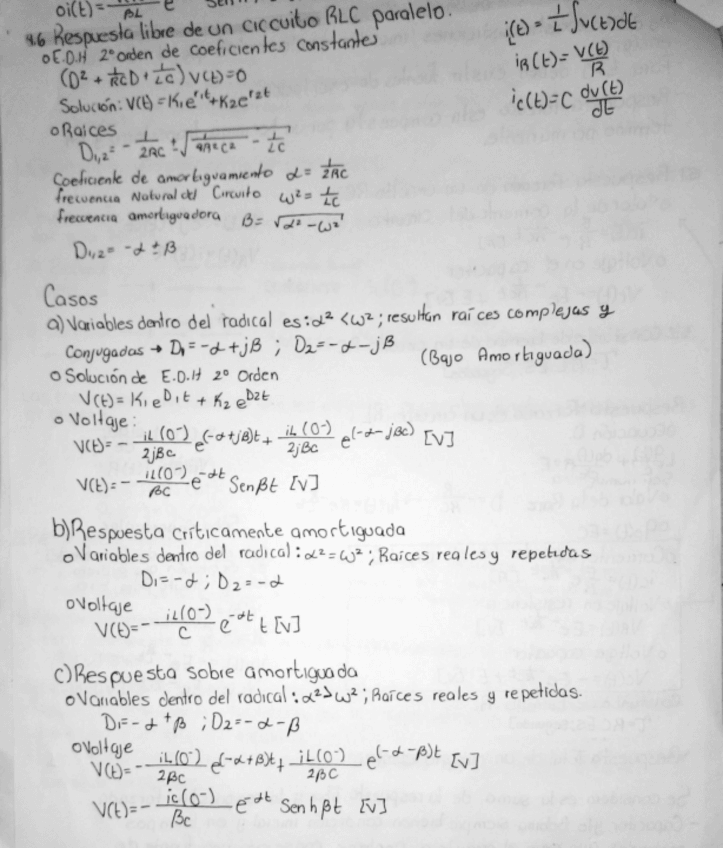 oi(t)=
4.6 Respuesta libre de un circuito RLC paralelo.
o E.D.H 2° orden de coeficientes constantes
(D² + 1/RC D + 1/LC) V(t)=0
Solución: V(t) = K₁e^r₁t + K₂e^r₂t
i(t) = 1/L ∫v(t)dt
iR(t) = V(t)/R
ic(t) = C dv(t)/dt
o Raíces
D₁,₂ = - 1/2RC ± √(1/4R²C² - 1/LC)
Coeficiente de amortiguamiento α = 1/2RC
frecuencia Natural del Circuito ω² = 1/LC
frecuencia amortiguadora β = √(α² - ω²)
D₁,₂ = -α ± β
Casos
a) Variables dentro del radical es: α² < ω²; resultan raíces complejas y
Conjugadas → D₁ = -α + jβ ; D₂ = -α - jβ
(Bajo Amortiguada)
o Solución de E.D.H 2° Orden
V(t) = K₁ e^D₁t + K₂ e^D₂t
o Voltaje:
V(t) = - iL(0⁻)/2jβc e^(-α+jβ)t + iL(0⁻)/2jβc e^(-α-jβc) [V]
V(t) = - iL(0⁻)/βC e^-αt Sen βt [V]
b) Respuesta críticamente amortiguada
o Variables dentro del radical: α² = ω²; Raíces reales y repetidas
D₁ = -α ; D₂ = -α
o Voltaje
V(t) = - iL(0⁻)/C e^-αt t [V]
c) Respuesta sobre amortiguada
o Variables dentro del radical: α² > ω²; Raíces reales y repetidas.
D₁ = -α + β ; D₂ = -α - β
o Voltaje
V(t) = - iL(0⁻)/2βc e^(-α+β)t + iL(0⁻)/2βC e^(-α-β)t [V]
V(t) = - ic(0⁻)/βc e^-αt Senh βt [V]